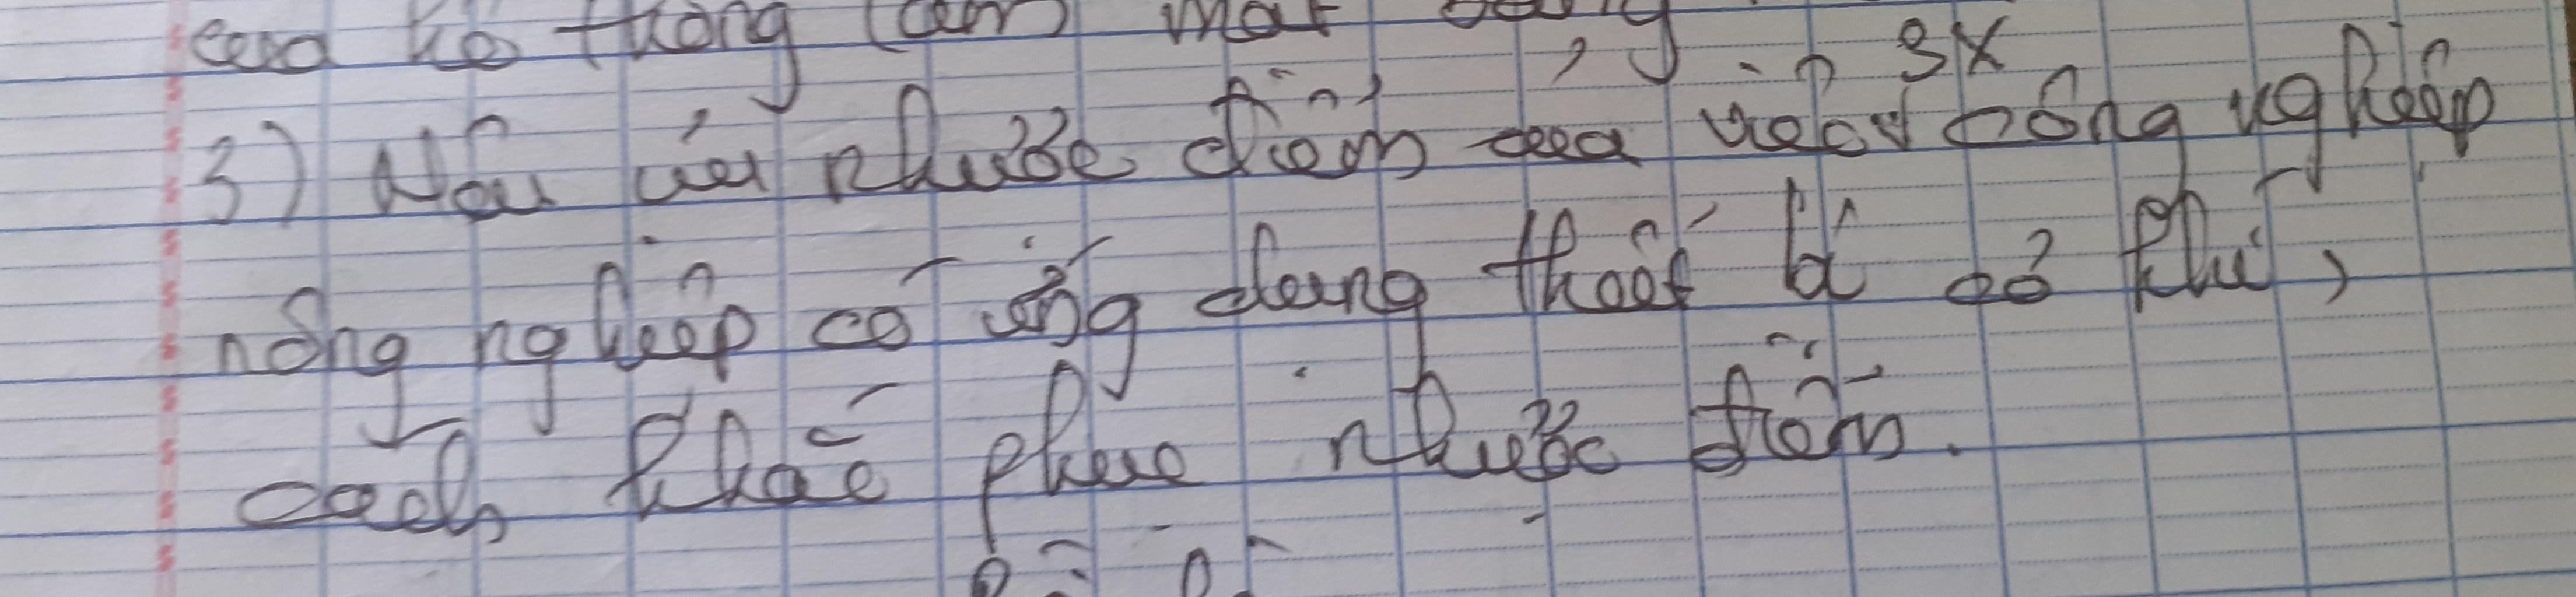 của hệ thống (cảm) mặt
SX
3) Nêu ưu nhược điểm của việc nông nghiệp
nông nghiệp có ứng dụng thiết bị cơ khí,
cách khắc phục nhược điểm.